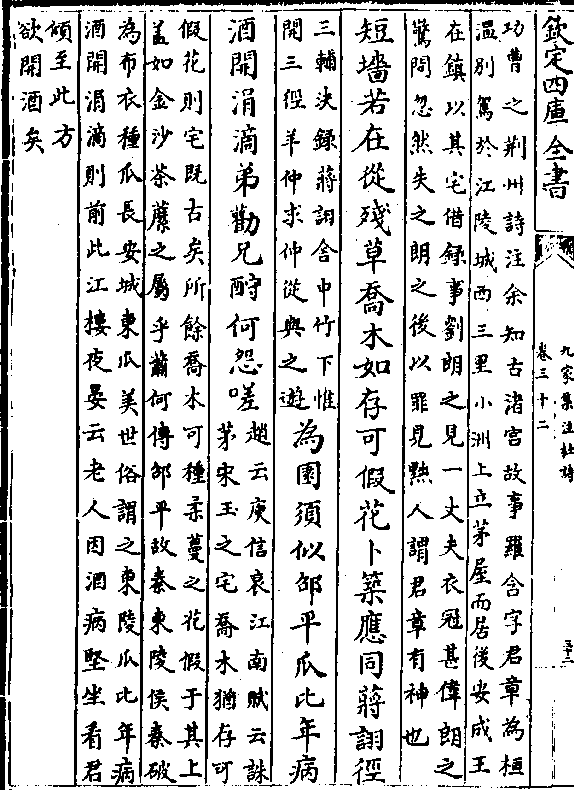 欽定四庫全書
九家集注杜詩
卷三十二
功曹之荆州詩注余知古渚宫故事羅含字君章為桓
温别駕於江陵城西三里小洲上立茅屋而居後安成王
在鎮以其宅借録事劉朗之見一丈夫衣冠甚偉朗之
驚問忽然失之朗之後以罪見黜人謂君章有神也
短墻若在從殘草喬木如存可假花卜築應同蔣詡徑
三輔決録蔣詡舍中竹下惟
開三徑羊仲求仲從與之遊
為園須似邵平瓜比年病
酒開涓滴弟勸兄酧何怨嗟
趙云庾信哀江南賦云誅
茅宋玉之宅喬木猶存可
假花則宅既古矣所餘喬木可種柔蔓之花假于其上
盖如金沙荼䕷之屬乎蕭何傳邵平故秦東陵侯秦破
為布衣種瓜長安城東瓜美世俗謂之東陵瓜比年病
酒開涓滴則前此江樓夜宴云老人因酒病堅坐看君
傾至此方
欲開酒矣